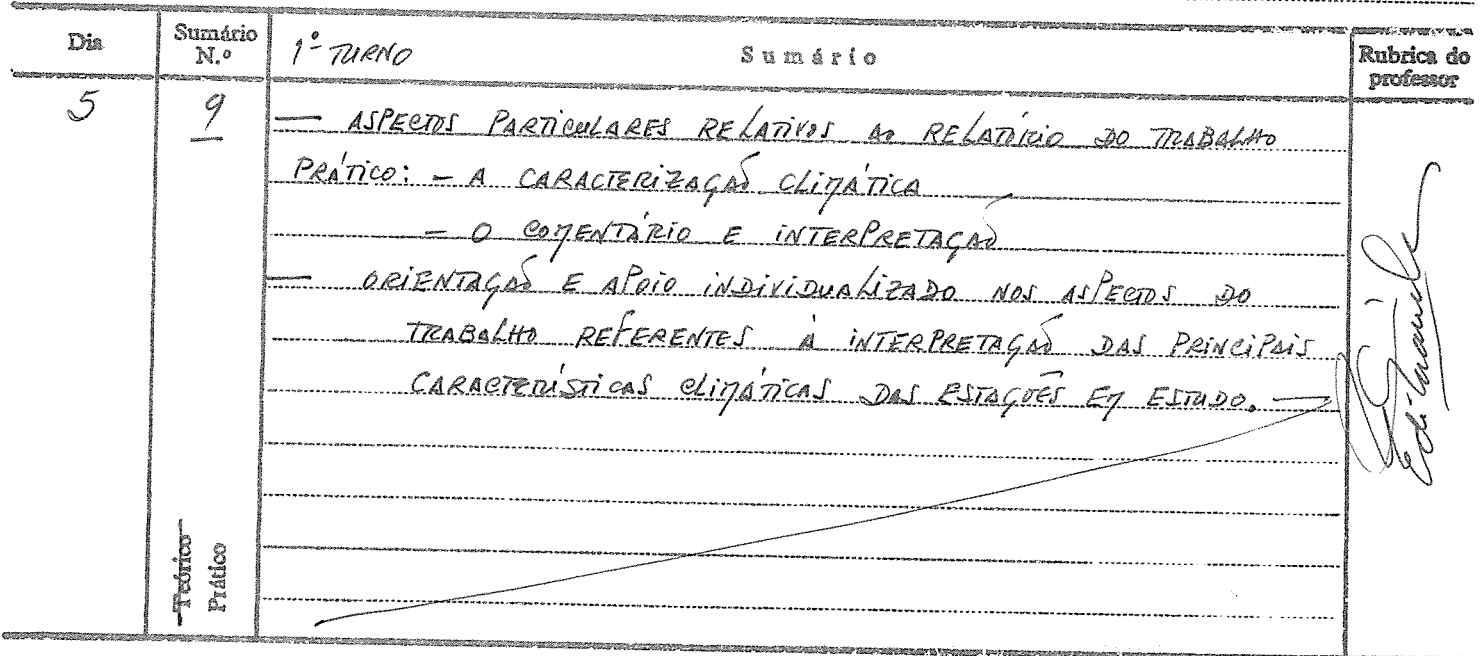 Dia Sumário N.º 1º TURNO Sumário Rubrica do professor
5 9 — ASPECTOS PARTICULARES RELATIVOS AO RELATÓRIO DO TRABALHO
PRÁTICO: - A CARACTERIZAÇÃO CLIMÁTICA
- O COMENTÁRIO E INTERPRETAÇÃO
— ORIENTAÇÃO E APOIO INDIVIDUALIZADO NOS ASPECTOS DO
TRABALHO REFERENTES À INTERPRETAÇÃO DAS PRINCIPAIS
CARACTERÍSTICAS CLIMÁTICAS DAS ESTAÇÕES EM ESTUDO. —
Teórico
Prático